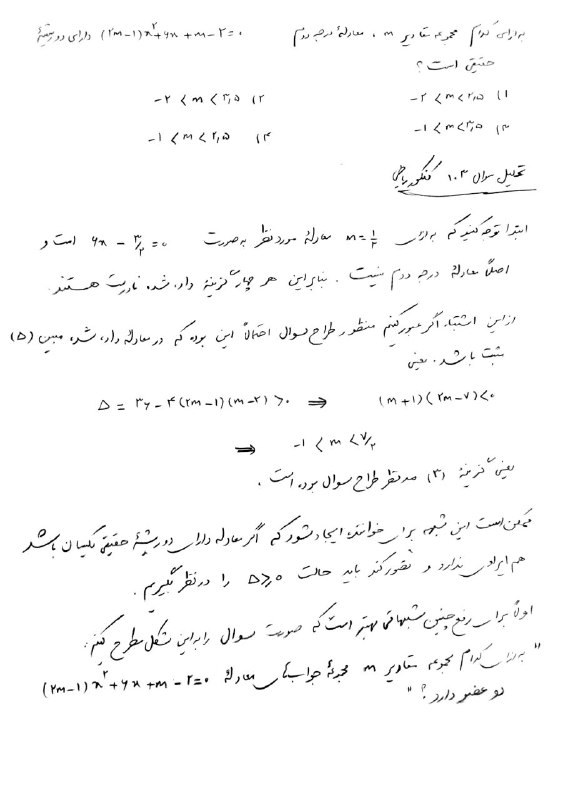 به ازای کدام مجموعه مقادیر m ، معادلهٔ درجه دوم (۲m−۱)x²+۶x+m−۲=۰ دارای دو ریشهٔ
حقیقی است ؟
۱) −۲ < m < ۲,۵ ۲) −۲ < m < ۳,۵
۳) −۱ < m < ۳,۵ ۴) −۱ < m < ۲,۵
تحلیل سوال ۱۰۳ کنکور ریاضی
ابتدا توجه کنید که به ازای m=۱/۲ معادلهٔ مورد نظر به صورت ۶x − ۳/۲ = ۰ است و
اصلاً معادلهٔ درجه دوم نیست . بنابراین هر چهار گزینهٔ داده شده نادرست هستند .
از این اشتباه اگر عبور کنیم منظور طراح سوال احتمالاً این بوده که در معادلهٔ داده شده مبین (Δ)
مثبت باشد . یعنی
Δ = ۳۶ − ۴(۲m−۱)(m−۲) > ۰ ⇒ (m+۱)(۲m−۷)<۰
⇒ −۱ < m < ۷/۲
یعنی گزینهٔ (۳) مد نظر طراح سوال بوده است .
ممکن است این شبهه برای خواننده ایجاد شود که اگر معادله دارای دو ریشهٔ حقیقی یکسان باشد
هم ایرادی ندارد و تصور کند باید حالت Δ⩾۰ را در نظر بگیریم .
اولاً برای رفع چنین شبهاتی بهتر است که صورت سوال را به این شکل مطرح کنیم :
" به ازای کدام مجموعه مقادیر m مجموعهٔ جوابهای معادلهٔ (۲m−۱)x²+۶x+m−۲=۰
دو عضو دارد ؟ "